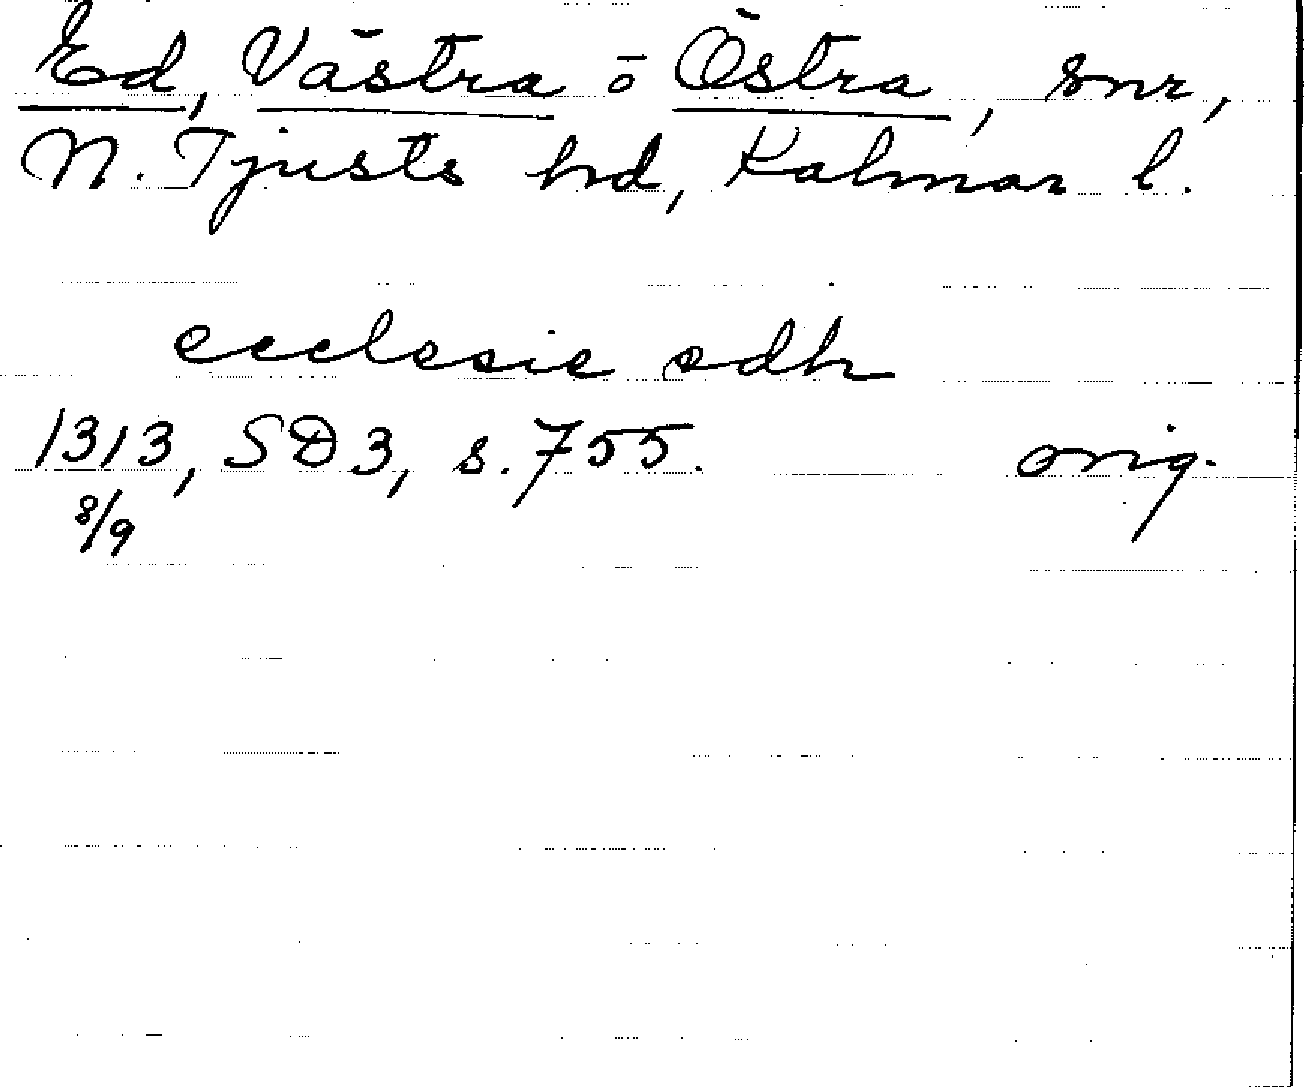 Ed, Västra o Östra, snr,
N. Tjusts hd, Kalmar l.
ecclesie edh
1313, SD3, s. 755. orig.
8/9